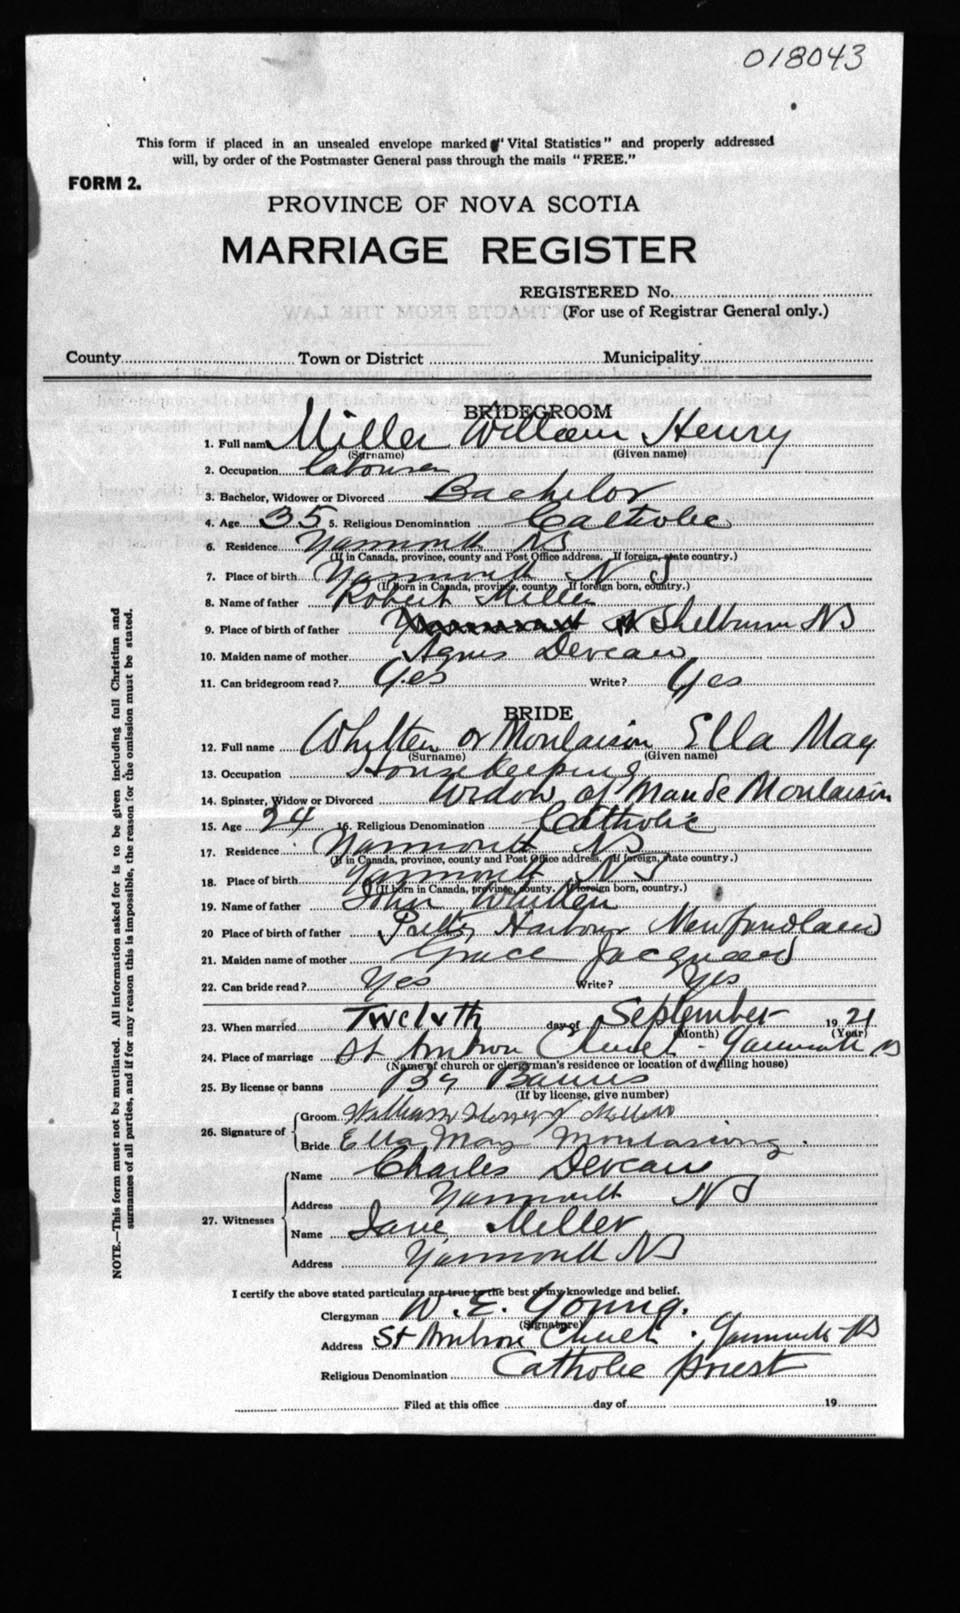 018043
This form if placed in an unsealed envelope marked "Vital Statistics" and properly addressed
will, by order of the Postmaster General pass through the mails "FREE."
FORM 2.
PROVINCE OF NOVA SCOTIA
MARRIAGE REGISTER
REGISTERED No.
(For use of Registrar General only.)
County Town or District Municipality
BRIDEGROOM
1. Full name Miller William Henry
(Surname) (Given name)
2. Occupation Labourer
3. Bachelor, Widower or Divorced Bachelor
4. Age 35 5. Religious Denomination Catholic
6. Residence Yarmouth NS
(If in Canada, province, county and Post Office address. If foreign, state country.)
7. Place of birth Yarmouth NS
(If born in Canada, province, county. If foreign born, country.)
8. Name of father Robert Miller
9. Place of birth of father Shelburne NS
10. Maiden name of mother Agnes Deveau
11. Can bridegroom read? Yes Write? Yes
BRIDE
12. Full name Whitten or Monlaison Ella May
(Surname) (Given name)
13. Occupation Housekeeping
14. Spinster, Widow or Divorced Widow of Mande Monlaison
15. Age 24 16. Religious Denomination Catholic
17. Residence Yarmouth NS
(If in Canada, province, county and Post Office address. If foreign, state country.)
18. Place of birth Yarmouth NS
(If born in Canada, province, county. If foreign born, country.)
19. Name of father John Whitten
20 Place of birth of father Harbour Newfoundland
21. Maiden name of mother Grace Jacquard
22. Can bride read? Yes Write? Yes
23. When married Twelvth day of September 1921
(Month) (Year)
24. Place of marriage St Ambrose Church - Yarmouth NS
(Name of church or clergyman's residence or location of dwelling house)
25. By license or banns By Banns
(If by license, give number)
26. Signature of Groom William Henery Miller
Bride Ella May
27. Witnesses Name Charles Deveau
Address Yarmouth NS
Name Jane Miller
Address Yarmouth NS
I certify the above stated particulars are true to the best of my knowledge and belief.
Clergyman W. E. Young.
(Signature)
Address St Ambrose Church. Yarmouth NS
Religious Denomination Catholic priest
Filed at this office day of 19
NOTE.—This form must not be mutilated. All information asked for is to be given including full Christian and
surnames of all parties, and if for any reason this is impossible, the reason for the omission must be stated.